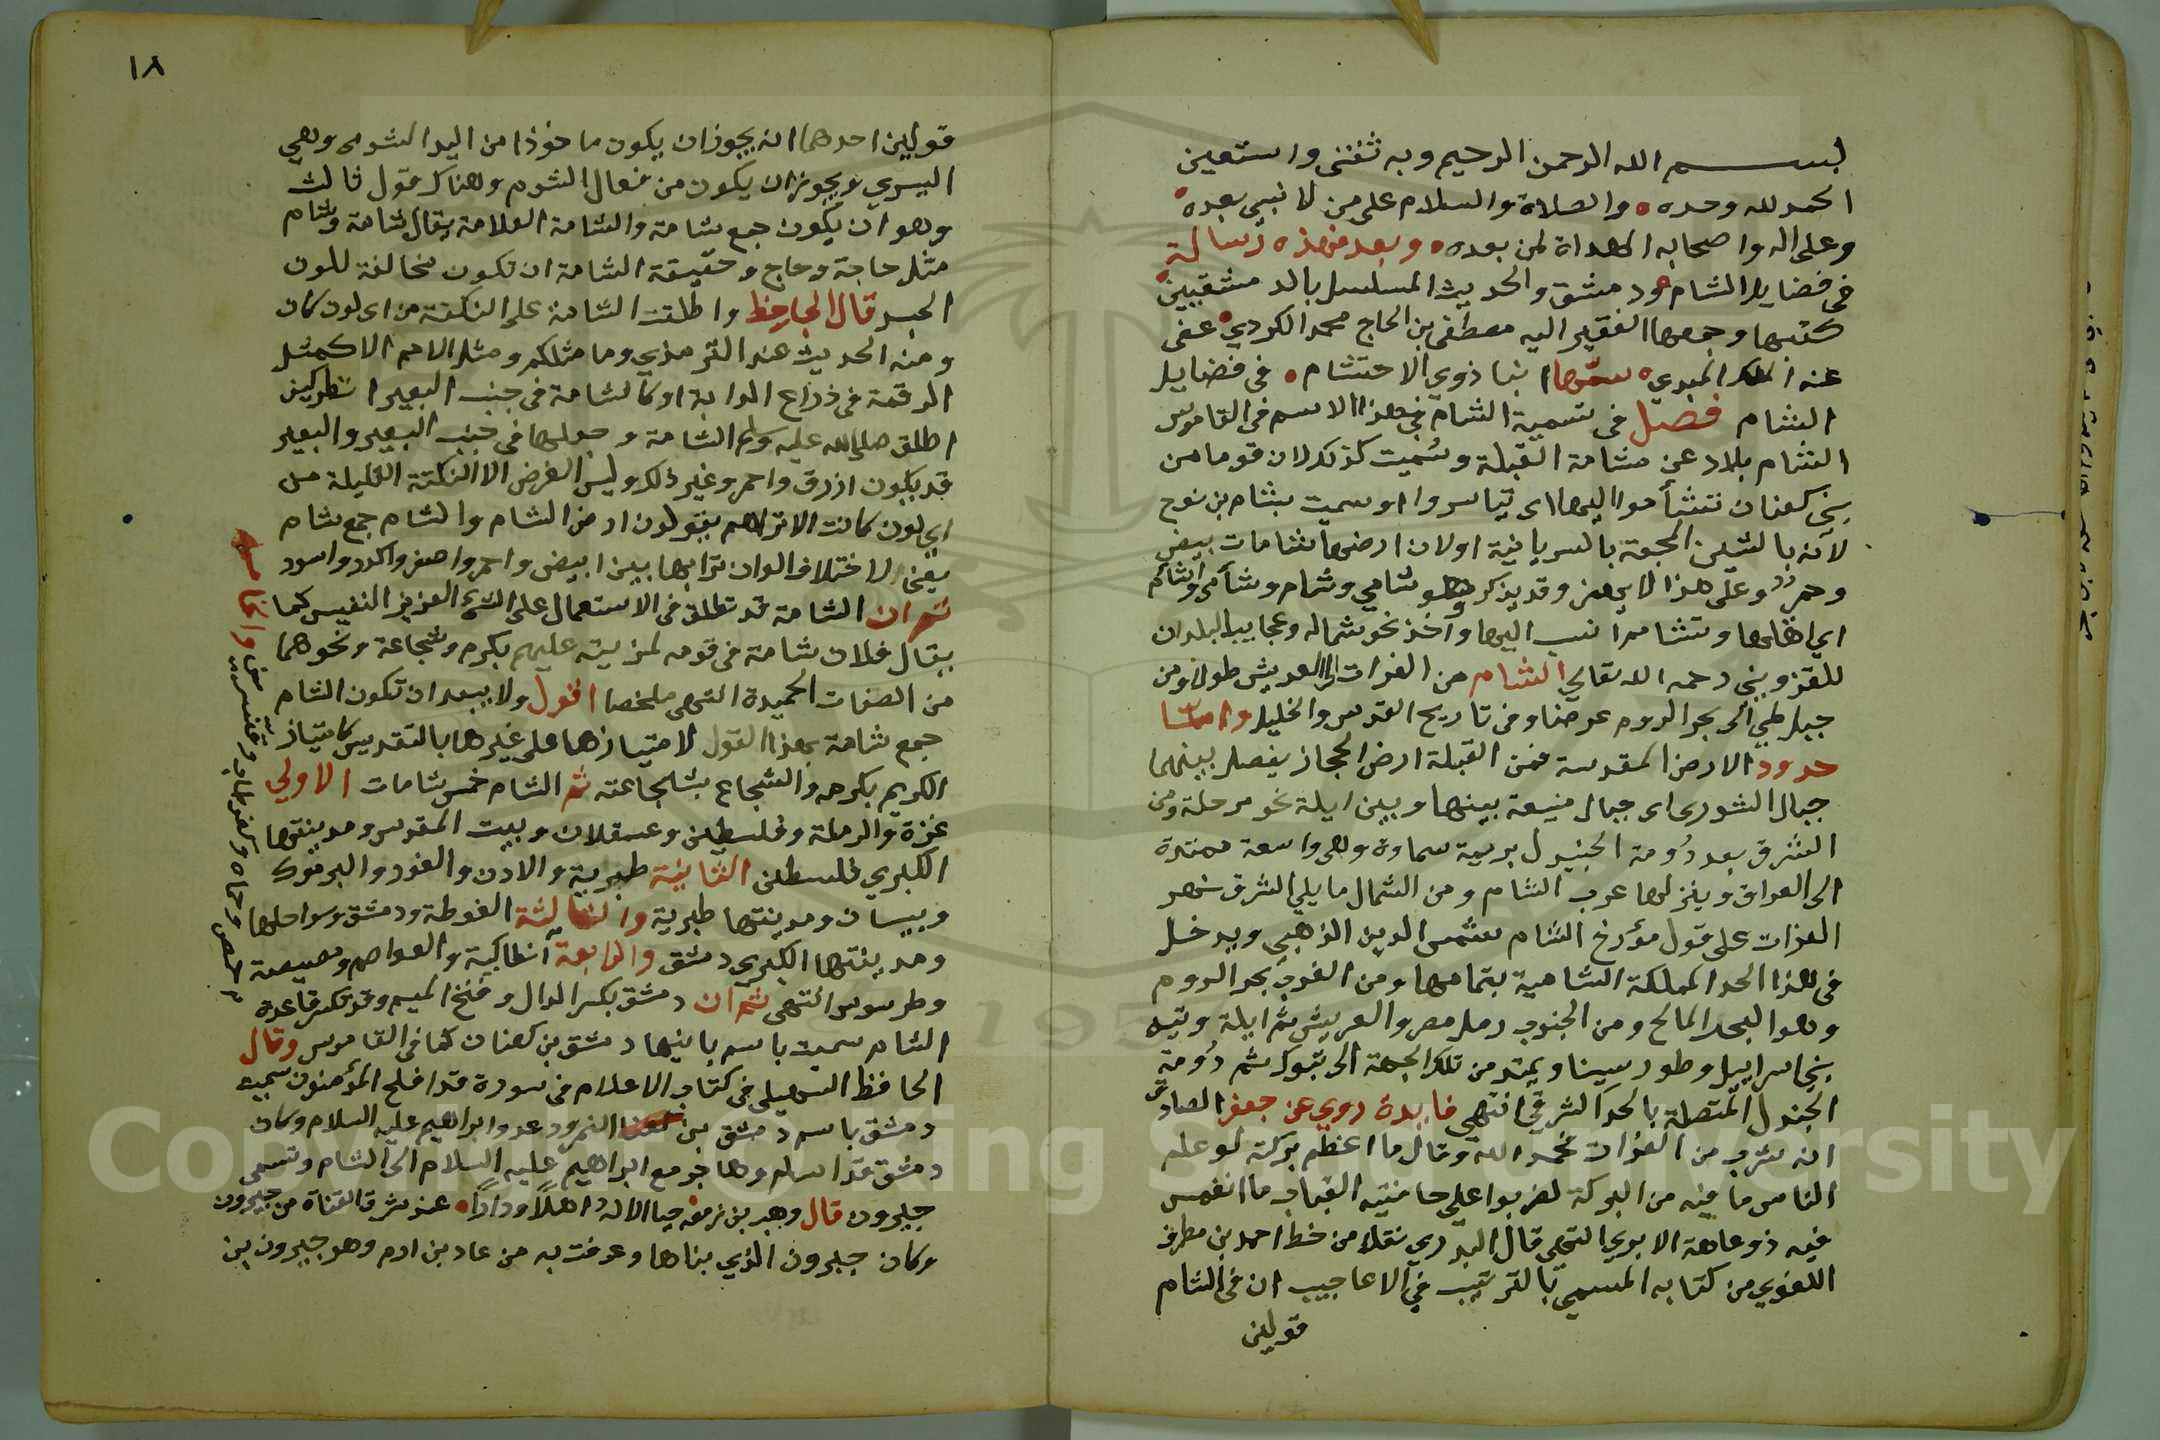 بسم الله الرحمن الرحيم وبه ثقتي واستعين
الحمد لله وحده والصلاة والسلام على من لا نبي بعده
وعلى اله واصحابه الهداة لمن بعده وبعد فهذه رسالة
في فضايل الشام ودمشق والحديث المسلسل بالدمشقيين
كتبها وجمعها الفقير اليه مصطفى بن الحاج محمد الكردي عفى
عنه الملك المبدي سمّيتها انبا ذوي الاحتشام في فضايل
الشام فصل في تسمية الشام في هذا الاسم في القاموس
الشام بلاد عن مشامة القبلة وسُميت كذلك لان قوما من
بني كنعان تشأموا اليها اى تياسروا او سميت بشام بن نوح
لانه بالشين المعجمة بالسريانية اولان ارضها شامات بيض
وحمر وعلى هذا لا يهمز وقد يذكر وهو شامي وشام وشأمي واشأم
اي اتاها وتشام انتسب اليها واخذ نحو شماله وعجايب البلدان
للقزويني رحمه الله تعالى الشام من الفرات الى العريش طولا ومن
جبل طي الى بحر الروم عرضا وفي تاريخ القدس والخليل واما
حدود الارض المقدسة فمن القبلة ارض الحجاز يفصل بينهما
جبال الشورى اى جبال منيعة بينها وبين ايلة نحو مرحلة ومن
الشرق بعد دُومة الجندل برية سماوة وهي واسعة ممتدة
الى العراق وينزلها عرب الشام ومن الشمال ما يلي الشرق نهر
الفرات على قول مؤرخ الشام شمس الدين الذهبي ويدخل
في هذا الحد المملكة الشامية بتمامها ومن الغرب بحر الروم
وهو البحر المالح ومن الجنوب رمل مصر والعريش ثم ايلة وتيه
بني اسراييل وطور سينا ويمتد من تلك الجهة الى تبوك ثم دُومة
الجندل المتصلة بالحد الشرقي انتهى فايدة روي عن جعفر الصادق
انه شرب من الفرات فحمد الله وقال ما اعظم بركته لو علم
الناس ما فيه من البركة لضربوا على حافتيه القباب ما انغمس
فيه ذو عاهة الا بوي انتهى قال البدري نقلا من خط احمد بن مطرف
اللغوي من كتابه المسمى بالترتيب في الاعاجيب ان في الشام
قولين
١٨
قولين احدهما انه يجوز ان يكون ماخوذا من اليد الشومى وهي
اليسرى ويجوز ان يكون من فعال الشوم وهناك قول ثالث
وهو ان يكون جمع شامة والشامة العلامة يقال شامة وشام
مثل حاجة وحاج وحقيقة الشامة ان تكون مخالفة للون
الجسد قال الجاحظ واطلقت الشامة على النكتة من اى لون كان
ومنه الحديث عند الترمذي وما مثلكم ومثل الامم الا كمثل
الرقمة في ذراع الدابة او كالشامة في جنب البعير انظر كيف
اطلق صلى الله عليه وسلم الشامة وجعلها في جنب البعير والبعير
قد يكون ازرق واحمر وغير ذلك وليس الغرض الا النكتة القليلة من
اي لون كانت الا تراهم يقولون ارض الشام والشام جمع شام
يعني لاختلاف الوان ترابها بين ابيض واحمر واصفر واكدر واسود
ثم ان الشامة قد تطلق في الاستعمال على الشيء العزيز النفيس كما
يقال فلان شامة في قومه لمزيته عليهم بكرم وشجاعة ونحوهما
من الصفات الحميدة انتهى ملخصا اقول ولا يبعد ان تكون الشام
جمع شامة بهذا القول لامتيازها على غيرها بالتقديس كامتياز
الكريم بكرمه والشجاع بشجاعته ثم الشام خمس شامات الاولى
غزة والرملة وفلسطين وعسقلان وبيت المقدس ومدينتها
الكبرى فلسطين الثانية طبرية والاردن والغور واليرموك
وبيسان ومدينتها طبرية والثالثة الغوطة ودمشق وسواحلها
ومدينتها الكبرى دمشق والرابعة انطاكية والعواصم ومصيصة
وطرسوس انتهى ثم ان دمشق بكسر الدال وفتح الميم وقد تكسر قاعدة
الشام سميت باسم بانيها دمشق بن كنعان كما في القاموس وقال
الحافظ السهيلي في كتاب الاعلام في سورة قد افلح المؤمنون سميت
دمشق باسم دمشق بن النمرود عدو ابراهيم عليه السلام وكان
دمشق قد اسلم وهاجر مع ابراهيم عليه السلام الى الشام وتسمى
جيرون قال وهب بن حيا الاله اهلا ودارا عند شرق القناة من جيرون
وكان جيرون الذي بناها وعرفت به من عاد بن ارم وهو جيرون بن
والخامسة